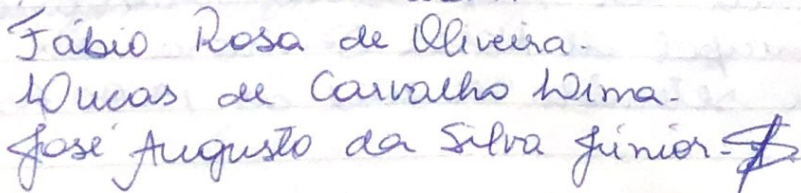 Fábio Rosa de Oliveira.
Lucas de Carvalho Lima.
José Augusto da Silva Júnior.